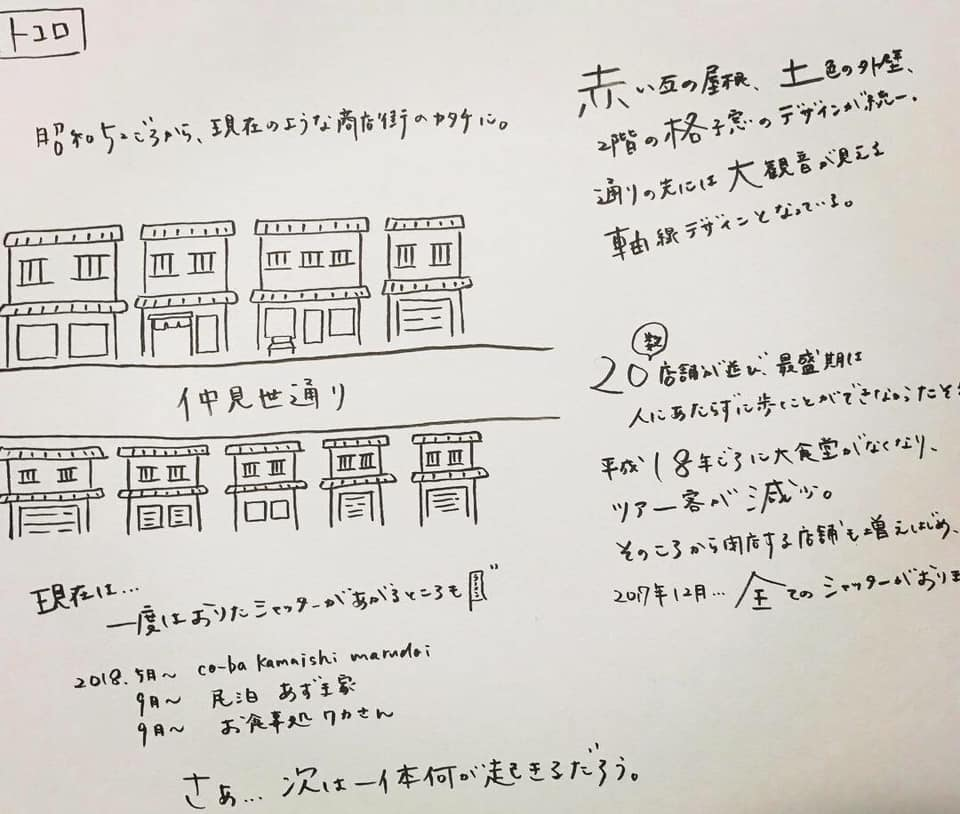 トコロ
昭和52ごろから、現在のような商店街のカタチに。
赤い瓦の屋根、土色の外壁、
2階の格子窓のデザインが統一。
通りの先には大観音が見える
軸線デザインとなっている。
仲見世通り
20数店舗が並び、最盛期は
人にあたらずに歩くことができなかったそ
平成18年ごろに大食堂がなくなり、
ツアー客が減少。
そのころから閉店する店舗も増えはじめ、
2017年12月… 全てのシャッターがおりま
現在は…
一度はおりたシャッターがあがるところも
2018. 5月〜 co-ba kamaishi marudai
9月〜 民泊 あずま家
9月〜 お食事処 ワカさん
さぁ… 次は一体何が起きるだろう。